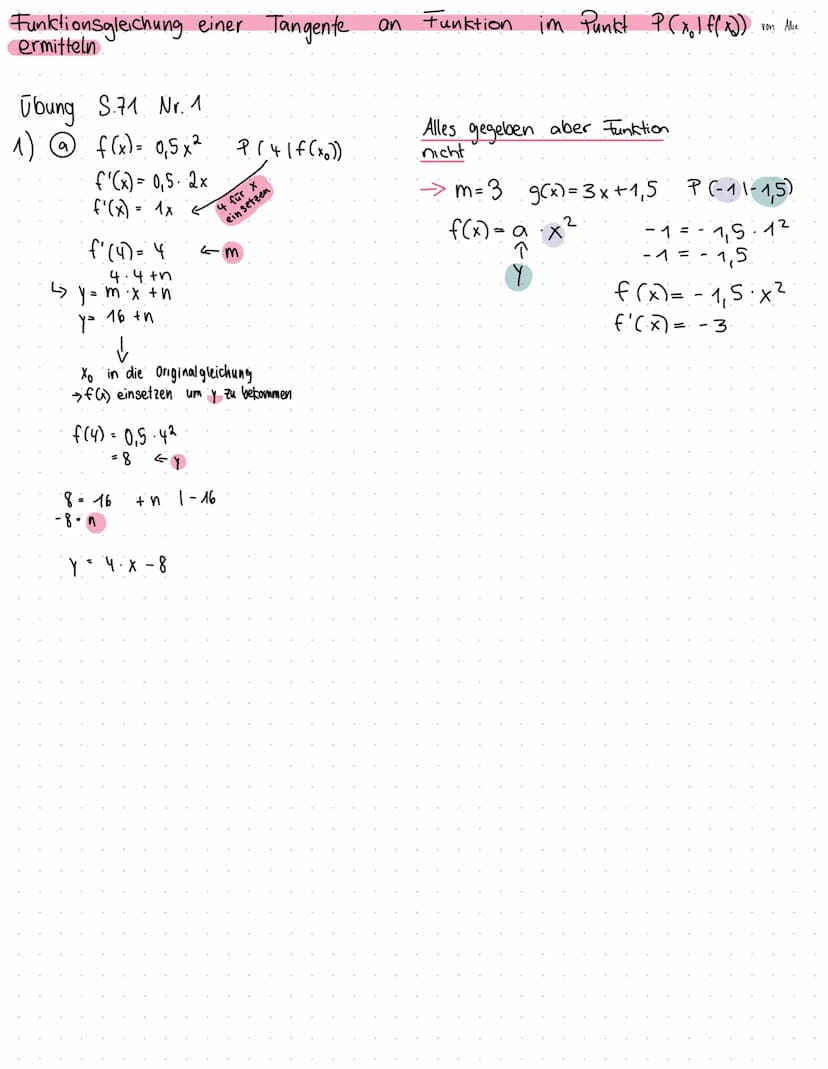 Funktionsgleichung einer Tangente an Funktion im Punkt P(x₀|f(x₀)) von Alice
ermitteln
Übung S.71 Nr. 1
1) a f(x) = 0,5x² P(4|f(x₀))
f'(x) = 0,5 · 2x
f'(x) = 1x ← 4 für x einsetzen
f'(4) = 4 ← m
4·4+n
↳ y = m·x+n
y = 16+n
↓
x₀ in die Originalgleichung
→ f(x) einsetzen um y zu bekommen
f(4) = 0,5·4²
= 8 ← y
8 = 16 + n |-16
-8 = n
y = 4·x - 8
Alles gegeben aber Funktion
nicht
→ m=3 g(x)=3x+1,5 P(-1|-1,5)
f(x) = a · x²
↑
y
-1 = -1,5·1²
-1 = -1,5
f(x) = -1,5·x²
f'(x) = -3